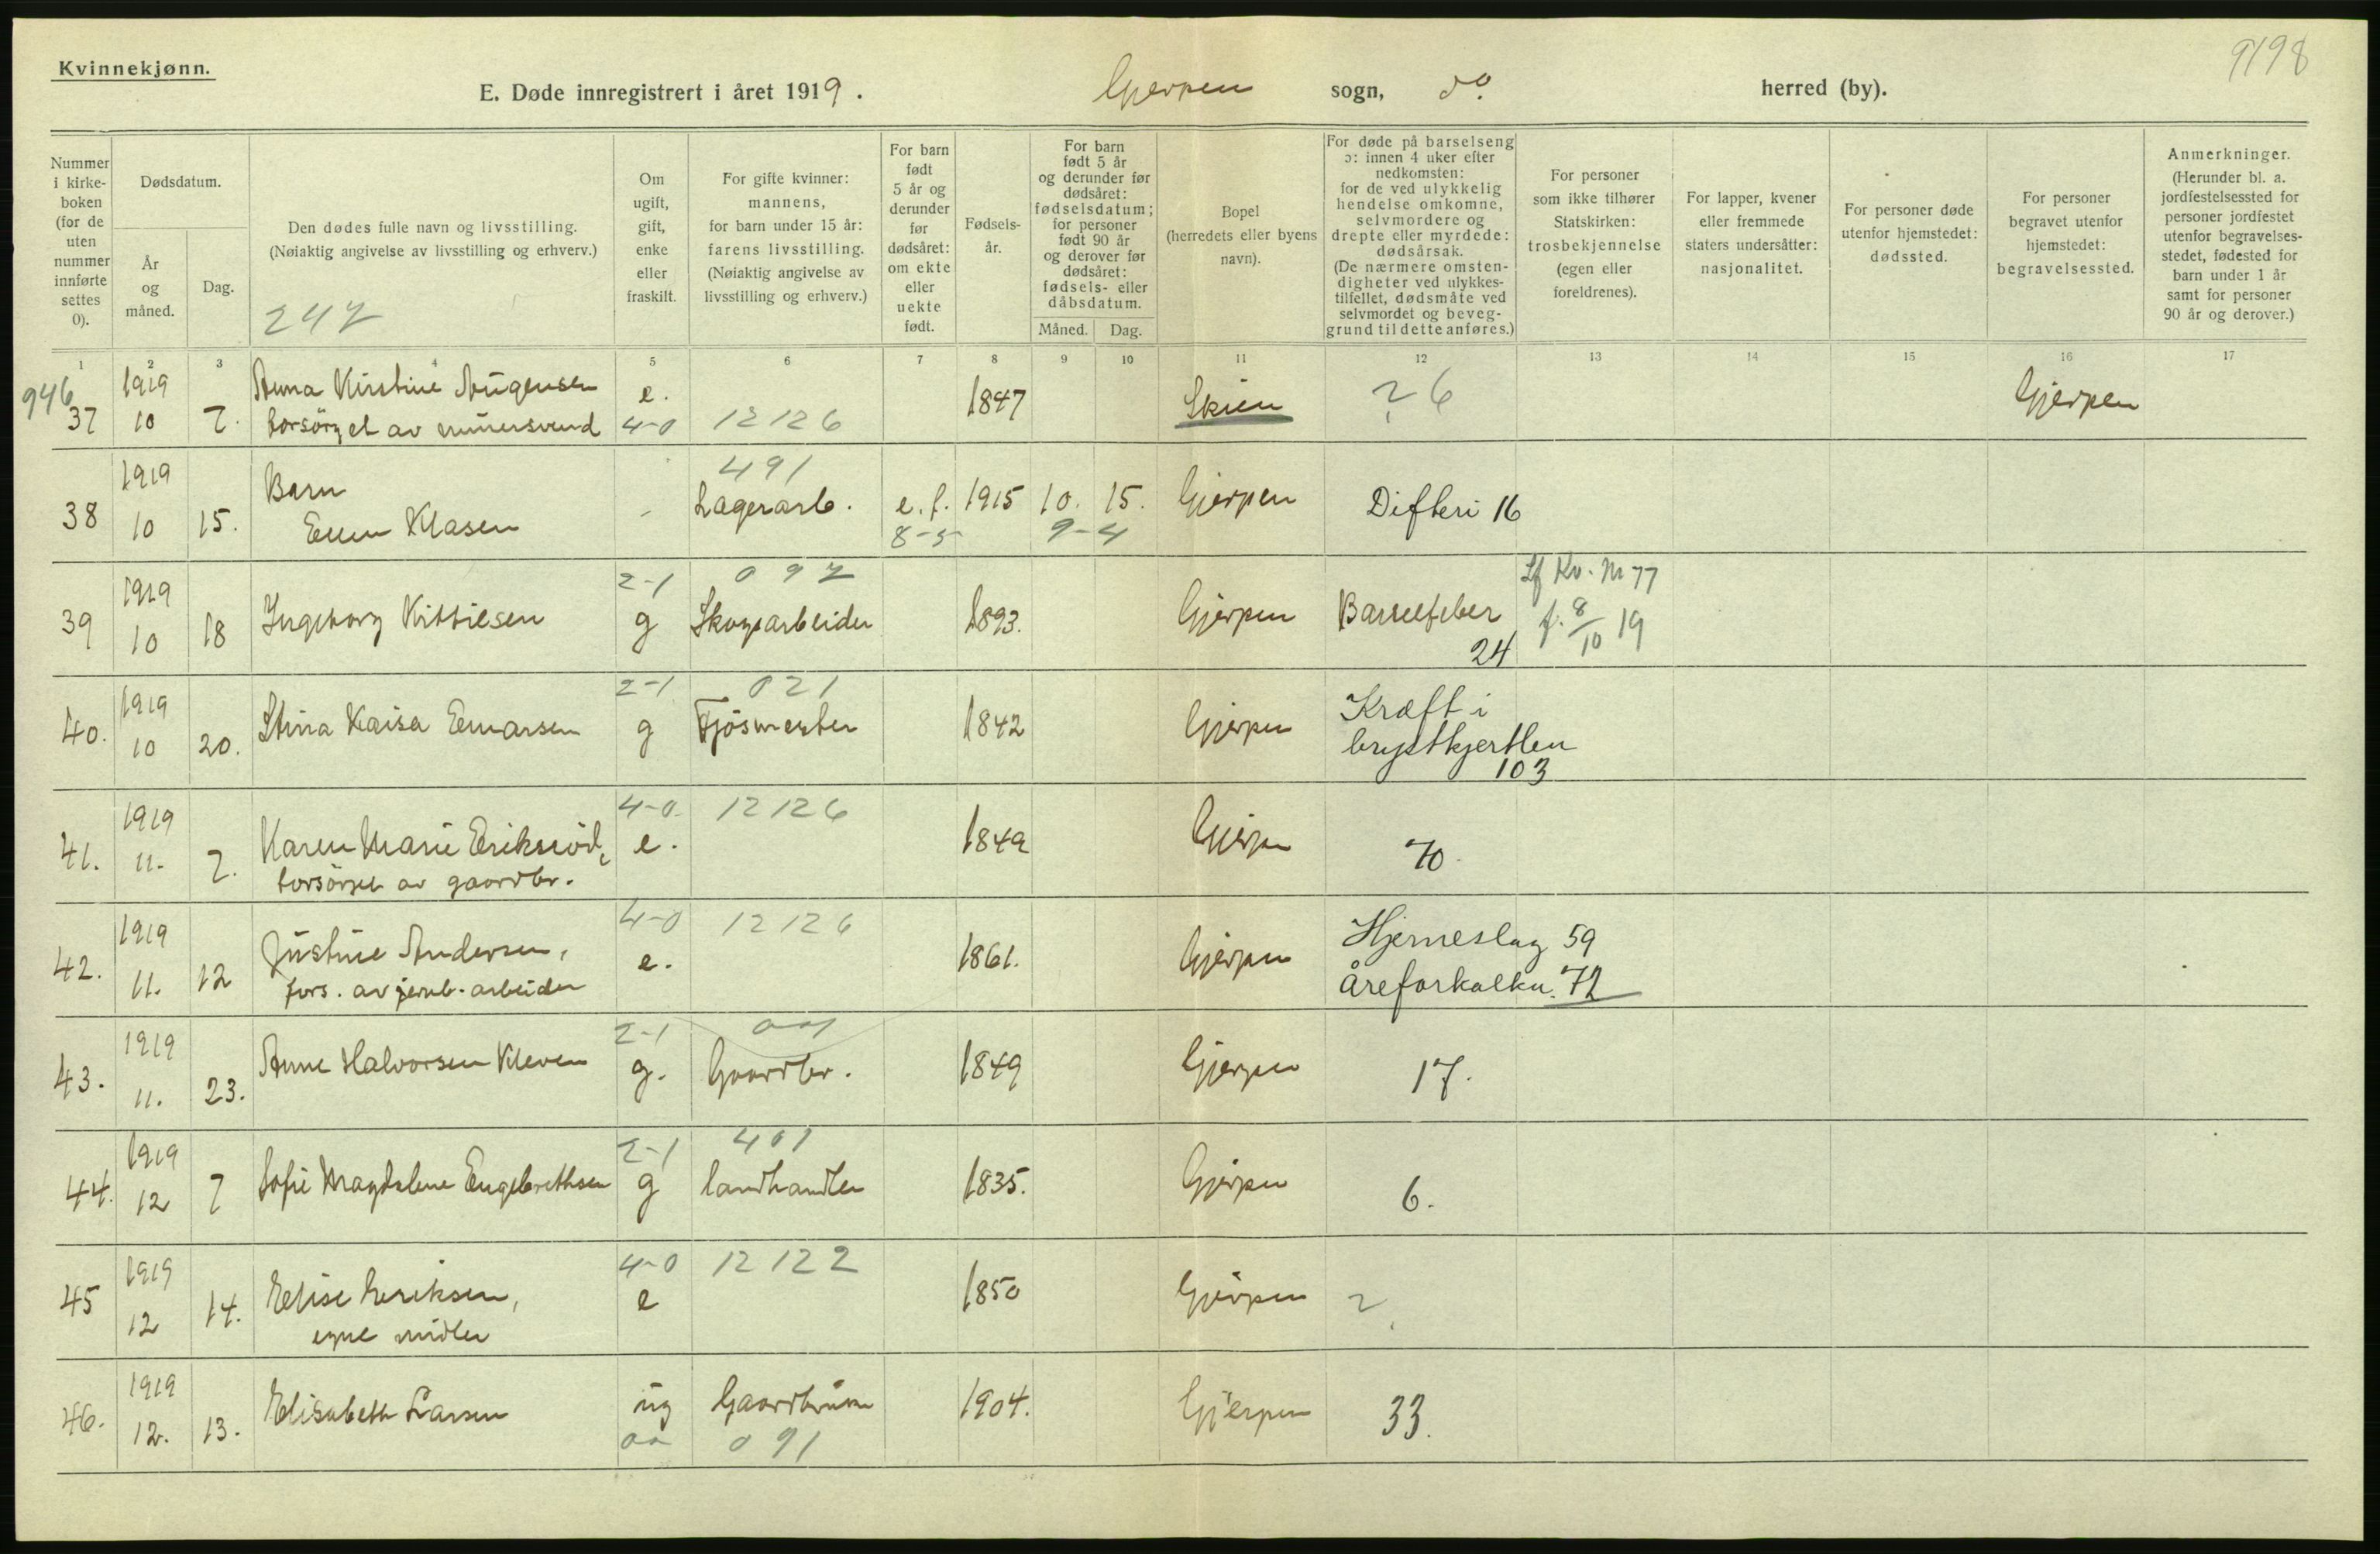 Kvinnekjønn.
9198
E. Døde innregistrert i året 1919. Gjerpen sogn, do. herred (by).
Nummer i kirke-boken (for de uten nummer innførte settes 0).
Dødsdatum.
År og måned.
Dag.
Den dødes fulle navn og livsstilling.
(Nøiaktig angivelse av livsstilling og erhverv.)
247
Om ugift, gift, enke eller fraskilt.
For gifte kvinner: mannens, for barn under 15 år: farens livsstilling. (Nøiaktig angivelse av livsstilling og erhverv.)
For barn født 5 år og derunder før dødsåret: om ekte eller uekte født.
Fødsels-år.
For barn født 5 år og derunder før dødsåret: fødselsdatum; for personer født 90 år og derover før dødsåret: fødsels- eller dåbsdatum.
Måned. Dag.
Bopel (herredets eller byens navn).
For døde på barselseng ɔ: innen 4 uker efter nedkomsten: for de ved ulykkelig hendelse omkomne, selvmordere og drepte eller myrdede: dødsårsak. (De nærmere omsten-digheter ved ulykkes-tilfellet, dødsmåte ved selvmordet og beveg-grund til dette anføres.)
For personer som ikke tilhører Statskirken: trosbekjennelse (egen eller foreldrenes).
For lapper, kvener eller fremmede staters undersåtter: nasjonalitet.
For personer døde utenfor hjemstedet: dødssted.
For personer begravet utenfor hjemstedet: begravelsessted.
Anmerkninger. (Herunder bl. a. jordfestelsessted for personer jordfestet utenfor begravelses-stedet, fødested for barn under 1 år samt for personer 90 år og derover.)
1 2 3 4 5 6 7 8 9 10 11 12 13 14 15 16 17
946
37 1919 10 7. Anna Kirstine e. 1847 Skien ? 6 Gjerpen
forsörget av murersvend 4-0 12126
491
38 1919 10 15. Barn - Lagerarb. e.f. 1915 10. 15. Gjerpen Difteri 16
Ellen Klasen 8-5 9-4
2-1 097 Lf Kv. Nr 77
39 1919 10 18 Ingeborg Kittilsen g Skogsarbeider 1893. Gjerpen Barselfeber 24 f. 8/10 19
2-1 021
40. 1919 10 20. Stina Kaisa Einarsen g Fjösmester 1842 Gjerpen Kræft i
brystkjertlen
103
4-0 12126
41. 1919 11. 7. Karen Marie e. 1849 Gjerpen 70.
forsörget av gaardbr.
4-0 12126
42. 1919 11. 12 Justine Andersen, e. 1861. Gjerpen Hjerneslag 59
fors. av jernb. arbeider Åreforkalkn. 72
2-1
43. 1919 11. 23. Anne Halvorsen Kleven g. Gaardbr. 1849 Gjerpen 17.
2-1 401
44. 1919 12 7 Sofie Magdalene Engebrethsen g landhandler 1835. Gjerpen 6.
4-0 12122
45 1919 12 14. Elise Eriksen, e 1850 Gjerpen ?
egne midler
46. 1919 12. 13. Elisabeth Larsen ug Gaardbruker 1904. Gjerpen 33.
091